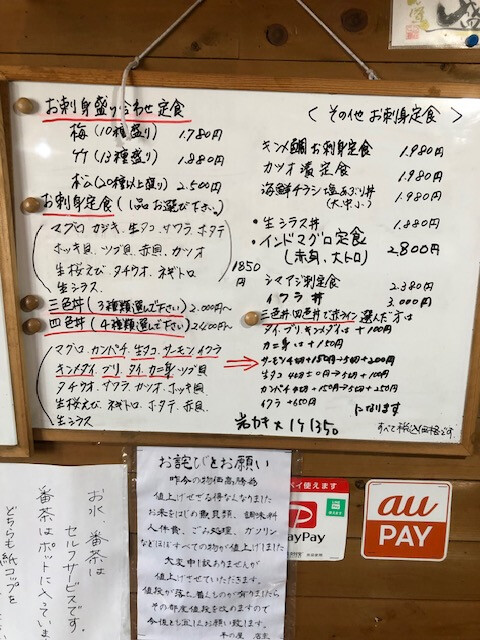 お刺身盛り合わせ定食
梅(10種盛り) 1.780円
竹(13種盛り) 1.880円
松(20種以上盛り) 2.500円
お刺身定食(1品お選び下さい)
マグロ カジキ、生タコ、サワラ、ホタテ
ホッキ貝、ツブ貝、赤貝、カツオ
生桜えび、タチウオ、ネギトロ
生シラス
1850円
三色丼(3種類選んで下さい) 2.000円~
四色丼(4種類選んで下さい)
(マグロ、カンパチ、生タコ、サーモン、イクラ
キンメダイ、ブリ、タイ、カニ身、ツブ貝
タチウオ、サワラ、カツオ、ホッキ貝
生桜えび、ネギトロ、ホタテ、赤貝、
生シラス
〈その他 お刺身定食〉
キンメ鯛お刺身定食 1.980円
カツオ漬定食 1.980円
海鮮チラシ塩あぶり丼 1.980円
(大、中、小)
・生シラス丼 1.880円
・インドマグロ定食 2,800円
(赤身、大トロ)
シマアジ刺定食 2.380円
イクラ丼 3.000円
三色丼四色丼で赤ライン選んだ方は
タイ、ブリ、キンメダイは+100円
カニ身は+150円
サーモン4切+150円→5切+200円
生タコ 4切±0円→5切+100円
カンパチ4切+150円→5切+250円
イクラ+650円
になります
岩カキ×1ケ1350
すべて税込価格です。
お詫びとお願い
昨今の物価高騰為
値上げせざる得なくなりました
お米をはじめ魚貝類、調味料
人件費、ごみ処理、ガソリン
などほぼすべての物が値上げしました
大変申し訳ありませんが
値上げさせていただきます。
値段が落ち着くものが有りましたら
その都度値段を改めますので
今後とも宜しくお願い致します。
店主
お水、番茶は
セルフサービスです。
番茶はポットに入っていま
どちらも紙コップを
ペイ使えます
PayPay
au
PAY